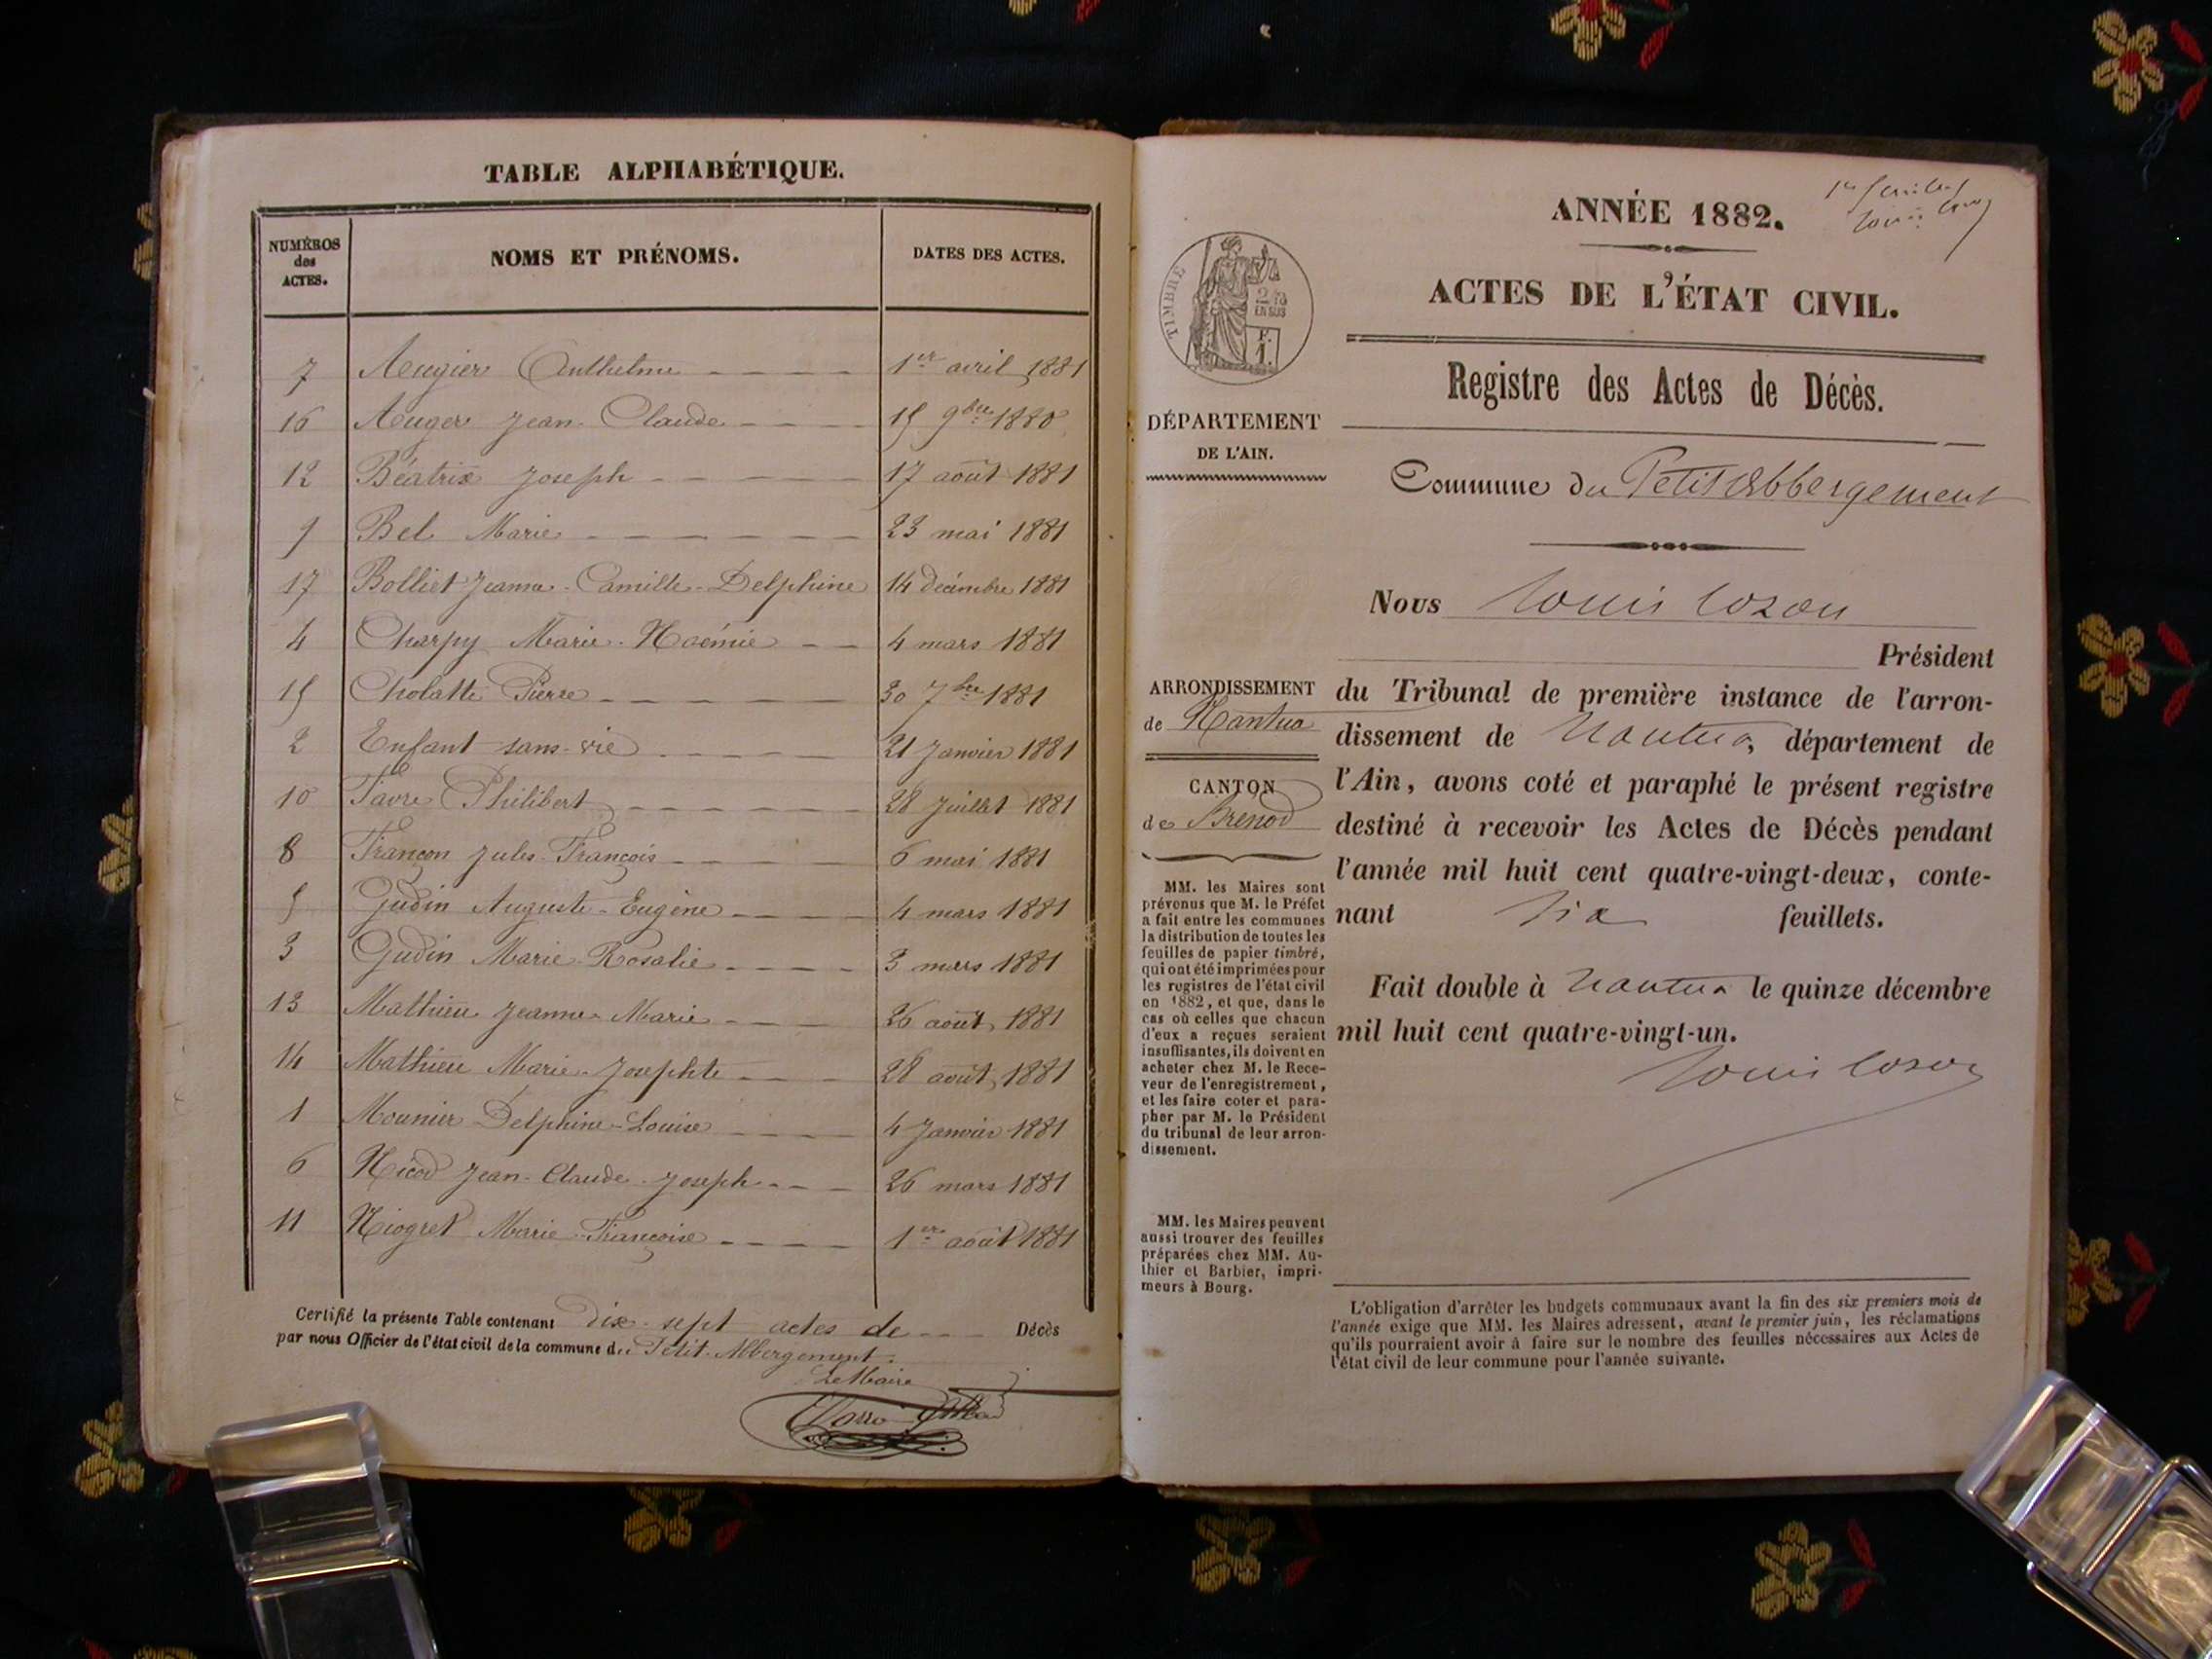 TABLE ALPHABÉTIQUE.
NUMÉROS des ACTES. NOMS ET PRÉNOMS. DATES DES ACTES.
7 Augier Anthelme 1er avril 1881
16 Auger Jean-Claude 15 9bre 1880
12 Béatrix Joseph 17 août 1881
9 Bel Marie 23 mai 1881
17 Bolliet Jeanne-Camille-Delphine 14 décembre 1881
4 Charpy Marie-Noémie 4 mars 1881
15 Cholatte Pierre 30 7bre 1881
2 Enfant sans-vie 21 Janvier 1881
10 Favre Philibert 28 Juillet 1881
8 Françon Jules-François 6 mai 1881
5 Gudin Auguste-Eugène 4 mars 1881
3 Gudin Marie-Rosalie 3 mars 1881
13 Mathieu Jeanne-Marie 26 août 1881
14 Mathieu Marie-Josephte 28 août 1881
1 Mounier Delphine-Louise 4 Janvier 1881
6 Nicod Jean-Claude-Joseph 26 mars 1881
11 Niogret Marie-Françoise 1er août 1881
Certifié la présente Table contenant dix-sept actes de Décès
par nous Officier de l'état civil de la commune du Petit-Abbergement.
Le Maire
1er feuillet
Louis Cozon
ANNÉE 1882.
ACTES DE L'ÉTAT CIVIL.
TIMBRE
2/10
EN SUS
F.
1.
Registre des Actes de Décès.
DÉPARTEMENT
DE L'AIN.
Commune du Petit Abbergement
Nous Louis Cozon
Président
du Tribunal de première instance de l'arron-
dissement de Nantua, département de
l'Ain, avons coté et paraphé le présent registre
destiné à recevoir les Actes de Décès pendant
l'année mil huit cent quatre-vingt-deux, conte-
nant six feuillets.
Fait double à Nantua le quinze décembre
mil huit cent quatre-vingt-un.
Louis Cozon
ARRONDISSEMENT
de Nantua
CANTON
de Brenod
MM. les Maires sont
prévenus que M. le Préfet
a fait entre les communes
la distribution de toutes les
feuilles de papier timbré,
qui ont été imprimées pour
les registres de l'état civil
en 1882, et que, dans le
cas où celles que chacun
d'eux a reçues seraient
insuffisantes, ils doivent en
acheter chez M. le Rece-
veur de l'enregistrement,
et les faire coter et para-
pher par M. le Président
du tribunal de leur arron-
dissement.
MM. les Maires peuvent
aussi trouver des feuilles
préparées chez MM. Au-
thier et Barbier, impri-
meurs à Bourg.
L'obligation d'arrêter les budgets communaux avant la fin des six premiers mois de
l'année exige que MM. les Maires adressent, avant le premier juin, les réclamations
qu'ils pourraient avoir à faire sur le nombre des feuilles nécessaires aux Actes de
l'état civil de leur commune pour l'année suivante.